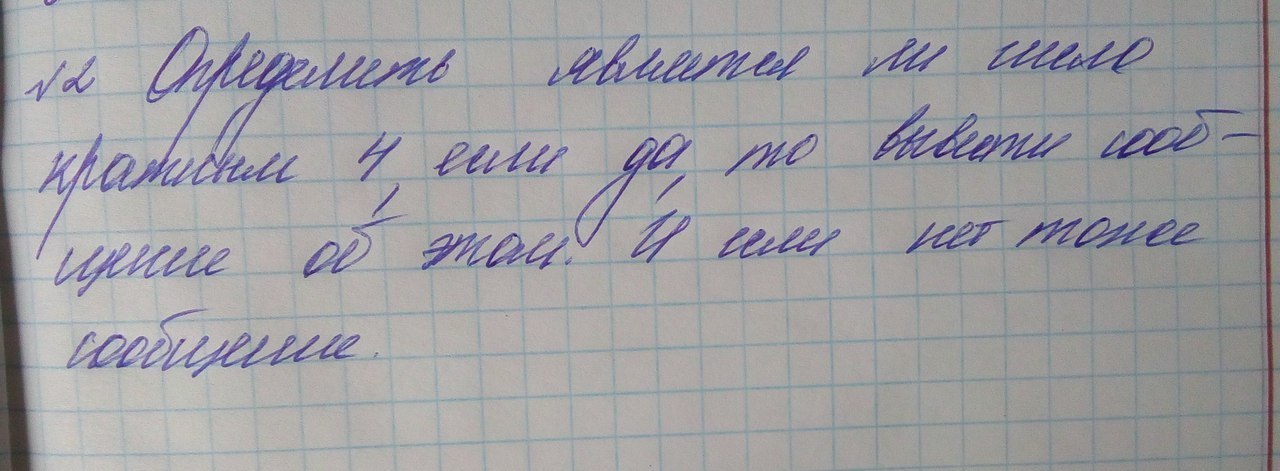 №2 Определить является ли число
кратным 4, если да, то вывести сооб-
щение об этом. И если нет тоже
сообщение.